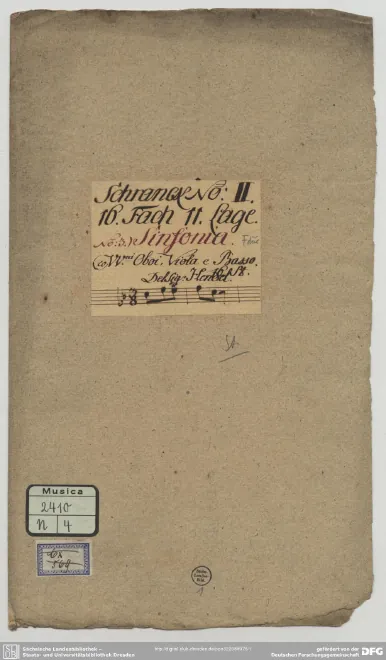 Schranck No: II.
16. Fach 11. Lage.
No: 3.) Sinfonia.
Co VV.ni Oboi. Viola e Basso.
16 St.
Del Sig:
Musica
2410
N 4
Sächsische Landesbibliothek -
Staats- und Universitätsbibliothek Dresden
gefördert von der
Deutschen Forschungsgemeinschaft
DFG